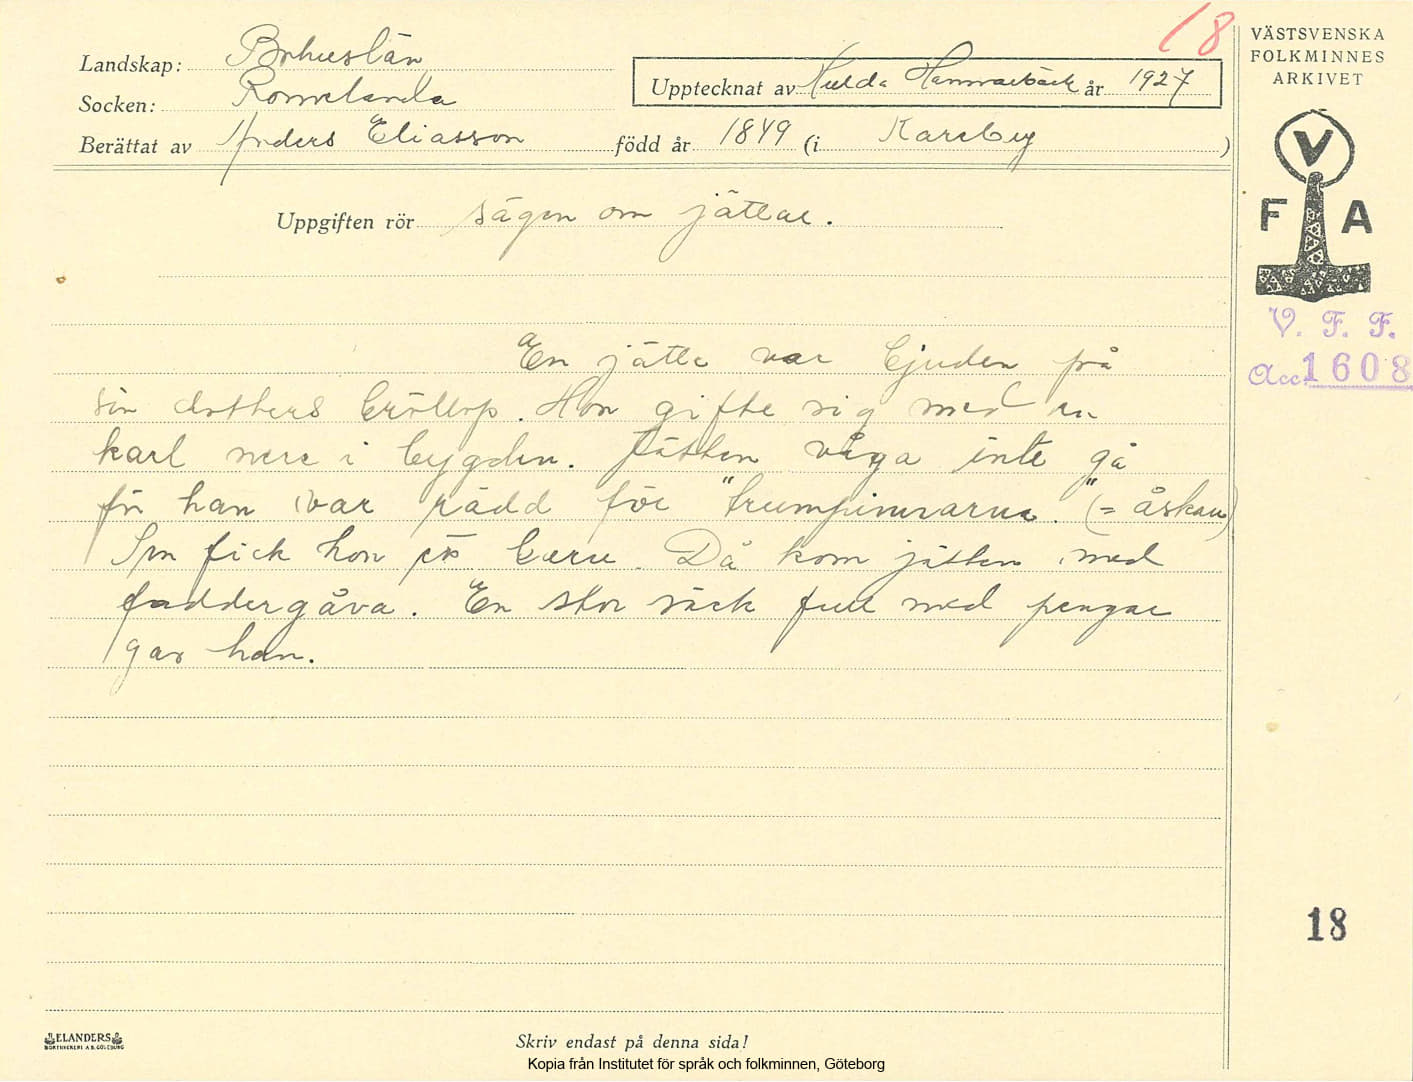 18
VÄSTSVENSKA
FOLKMINNES
ARKIVET
Landskap: Bohuslän
Socken: Romelanda
Upptecknat av Hulda Hammarbäck år 1927
Berättat av Anders Eliasson född år 1849 (i Kareby)
V
F A
Uppgiften rör sägen om jättar.
V. F. F.
Acc. 1608
En jätte var bjuden på
sin dotters bröllop. Hon gifte sig med en
karl nere i bygden. Jätten våga inte gå
för han var rädd för "trumpinnarna." (= åskan)
Sen fick hon barn. Då kom jätten med
faddergåva. En stor säck full med pengar
gav han.
18
ELANDERS
BOKTRYCKERI A.B. GÖTEBORG
Skriv endast på denna sida!
Kopia från Institutet för språk och folkminnen, Göteborg